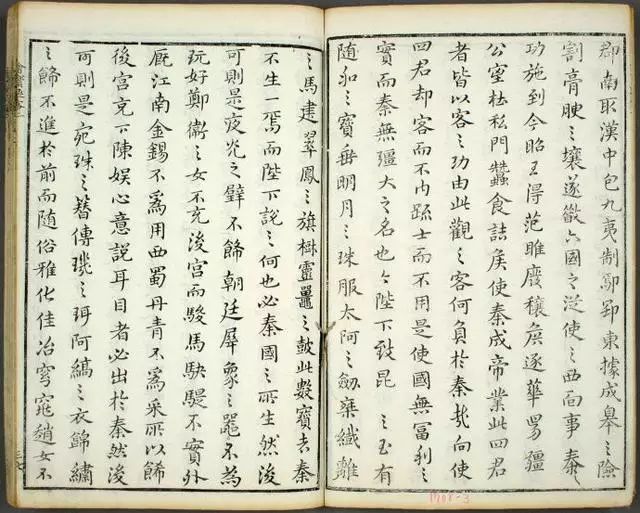 郡南取漢中包九夷制鄢郢東據成皋之險
割膏腴之壤遂散六國之從使之西面事秦
功施到今昭王得范雎廢穰侯逐華彊
公室杜私門蠶食諸侯使秦成帝業此四君
者皆以客之功由此觀之客何負於秦哉向使
四君却客而不内疏士而不用是使國無富利之
實而秦無彊大之名也今陛下致昆之玉有
隨和之寶垂明月之珠服太阿之劍乘纖離
之馬建翠鳳之旗樹靈鼉之鼓此數寶者秦
不生一焉而陛下說之何也必秦國之所生然後
可則是夜光之璧不餙朝廷犀象之器不為
玩好鄭衛之女不充後宮而駿馬駃騠不實外
廄江南金錫不為用西蜀丹青不為采所以餙
後宮充下陳娛心意說耳目者必出於秦然後
可則是宛珠之簪傅璣之珥阿縞之衣錦繡
之餙不進於前而隨俗雅化佳冶窈窕趙女不